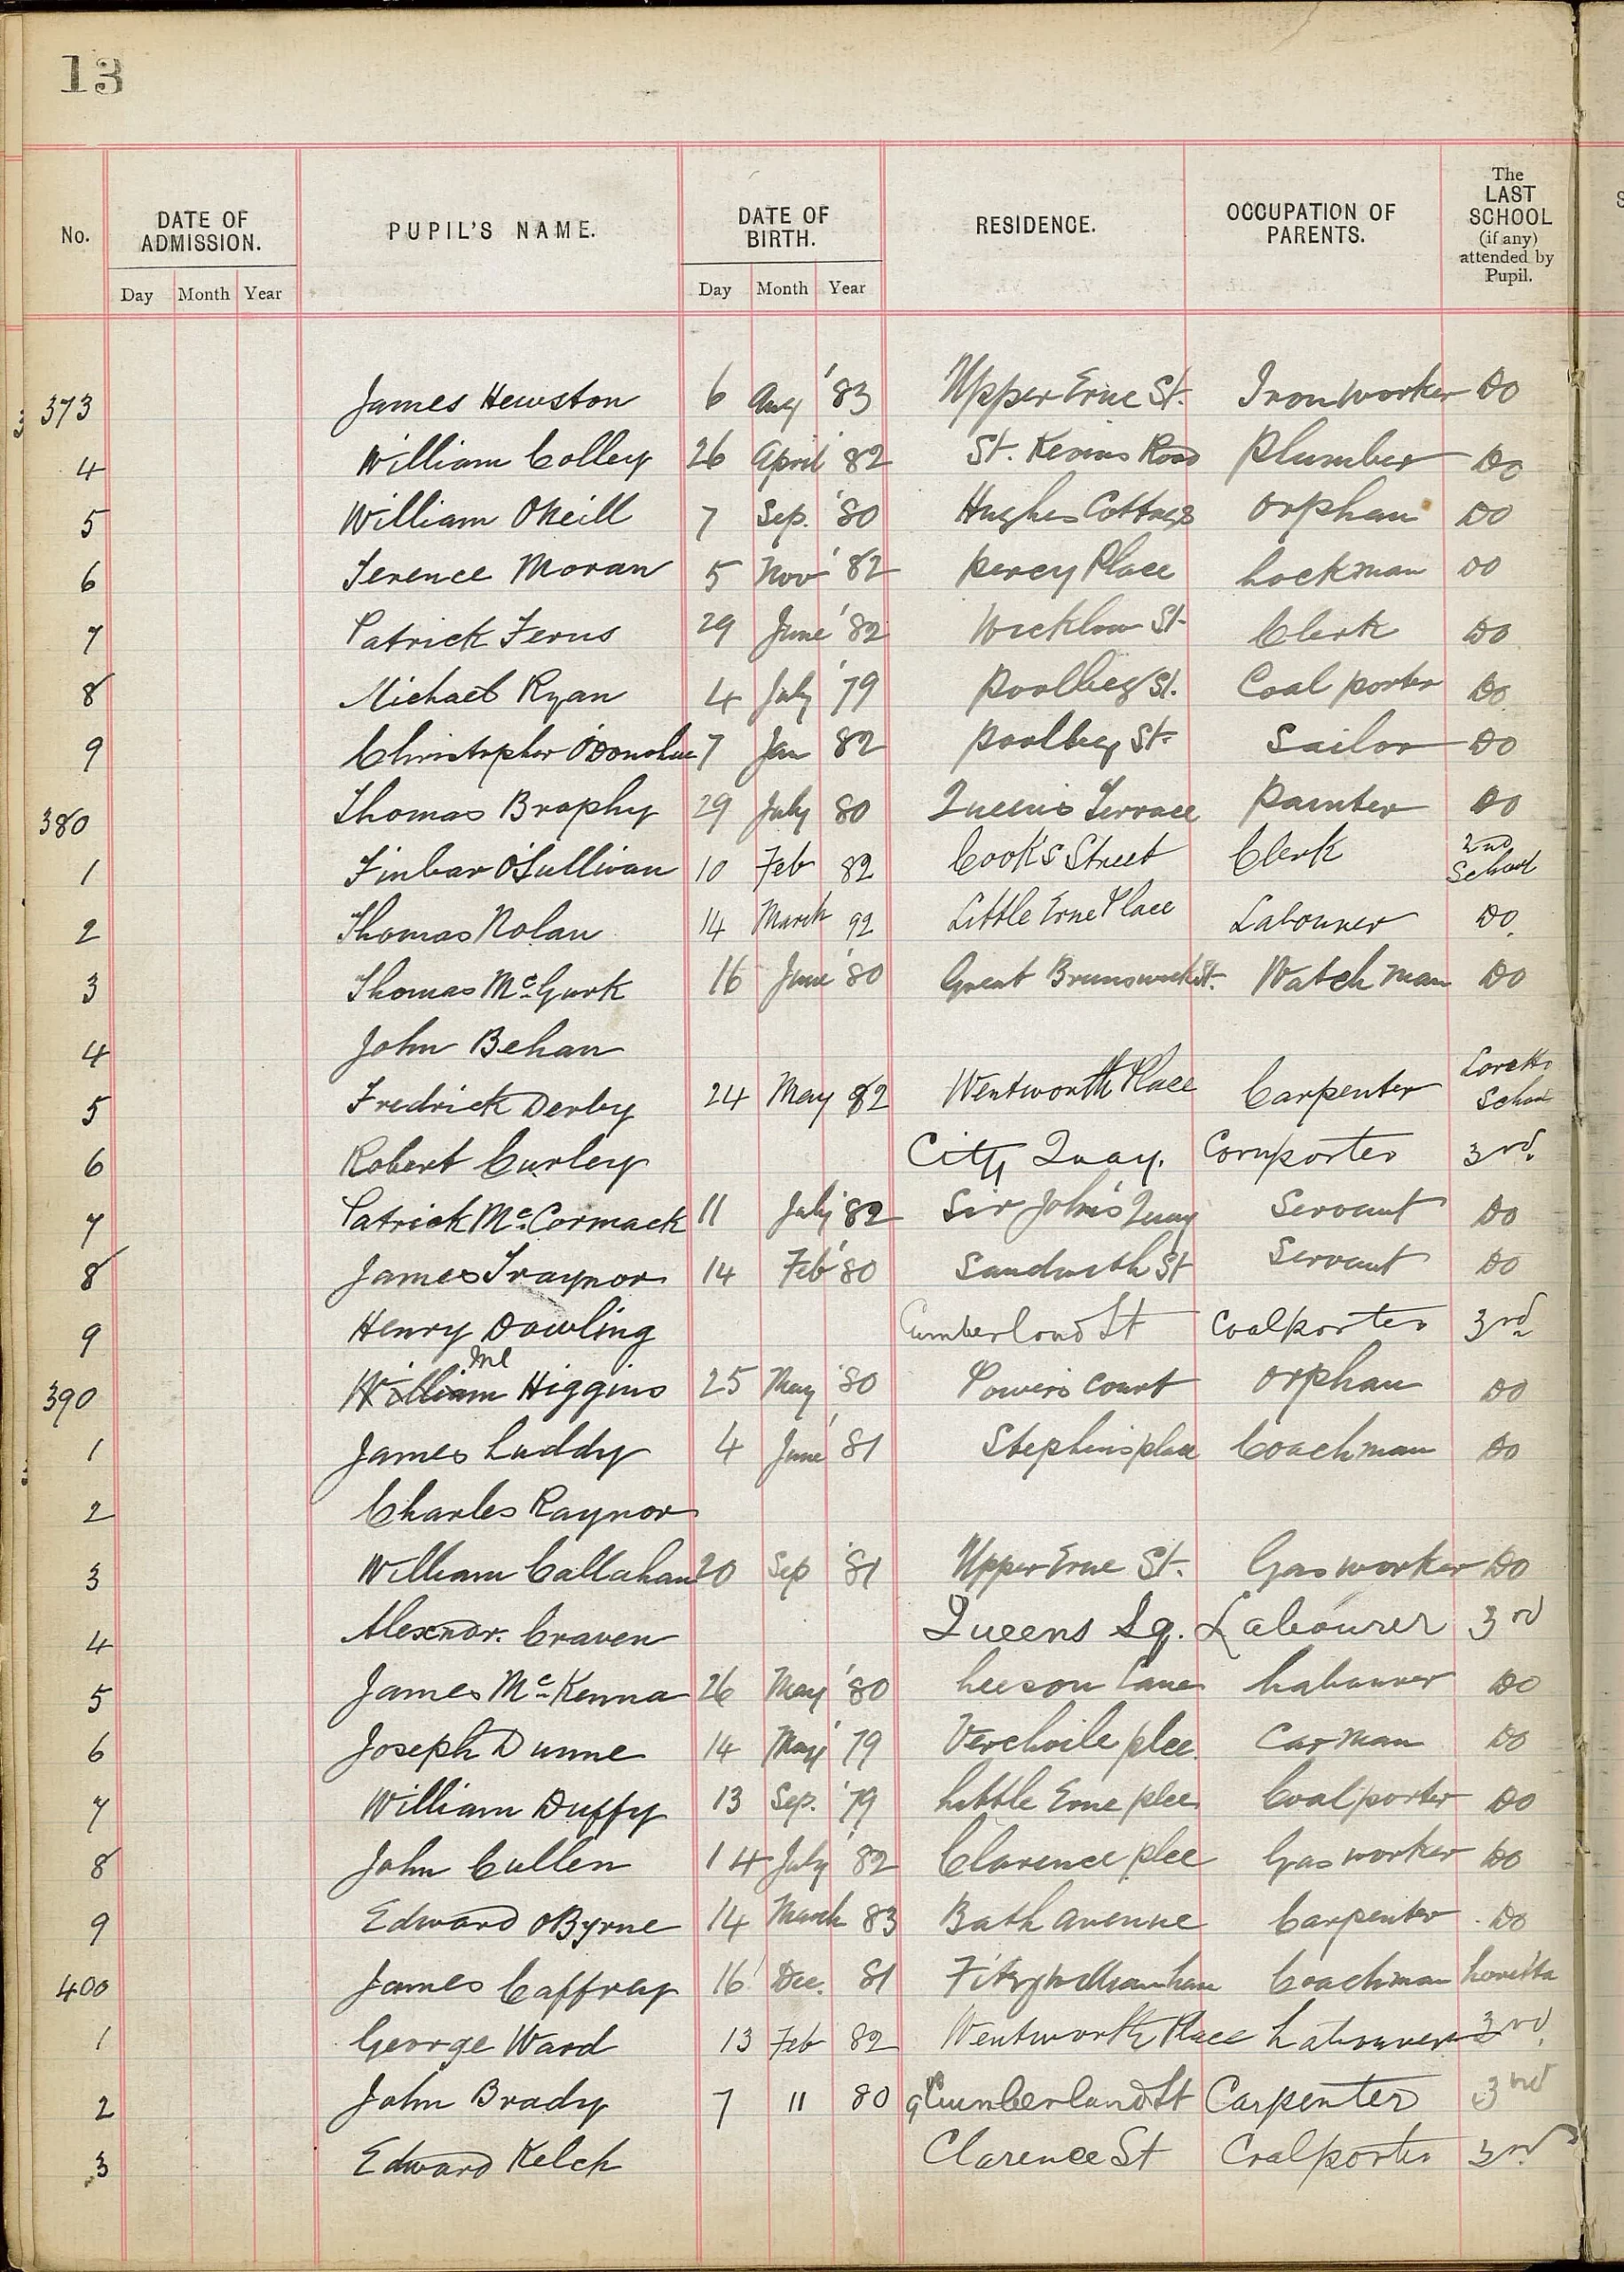 13
No. DATE OF ADMISSION. PUPIL'S NAME. DATE OF BIRTH. RESIDENCE. OCCUPATION OF PARENTS. The LAST SCHOOL (if any) attended by Pupil.
Day Month Year Day Month Year
373 James Hewston 6 Aug '83 Upper Erne St. Ironworker Do
4 William Colley 26 April '82 St. Kevins Road Plumber Do
5 William ONeill 7 Sep. '80 Hughes Cottages Orphan Do
6 Terence Moran 5 Nov '82 Percy Place Lockman Do
7 Patrick Ferns 29 June '82 Wicklow St. Clerk Do
8 Michael Ryan 4 July '79 Poolbeg St. Coal porter Do
9 Christopher O'Donohue 7 Jan 82 Poolbeg St. Sailor Do
380 Thomas Brophy 29 July 80 Queen's Terrace Painter Do
1 Finbar O'Sullivan 10 Feb 82 Cook's Street Clerk 2nd School
2 Thomas Nolan 14 March 92 Little Erne Place Labourer Do.
3 Thomas McGurk 16 June '80 Great Brunswick St. Watchman Do
4 John Behan
5 Fredrick Derby 24 May 82 Wentworth Place Carpenter Loretto School
6 Robert Curley City Quay. Cornporter 3rd.
7 Patrick McCormack 11 July '82 Sir John's Quay Servant Do
8 James Traynor 14 Feb '80 Sandwith St Servant Do
9 Henry Dowling Cumberland St Coalporter 3rd
390 William Ml Higgins 25 May '80 Powers court Orphan Do
1 James Luddy 4 June '81 Stephens place Coachman Do
2 Charles Raynor
3 William Callahan 20 Sep '81 Upper Erne St. Gasworker Do
4 Alexndr. Craven Queens Sq. Labourer 3rd
5 James McKenna 26 May '80 Leeson Lane Labourer Do
6 Joseph Dunne 14 May '79 Verchoile plce Carman Do
7 William Duffy 13 Sep. '79 Little Erne plce Coalporter Do
8 John Cullen 14 July '82 Clarence plce Gasworker Do
9 Edward OByrne 14 March 83 Bath avenue Carpenter Do
400 James Caffrey 16 Dec. 81 Coachman Loretto
1 George Ward 13 Feb 82 Wentworth Place Labourer 3rd.
2 John Brady 7 11 80 Cumberland St Carpenter 3rd
3 Edward Kelch Clarence St Coalporter 3rd